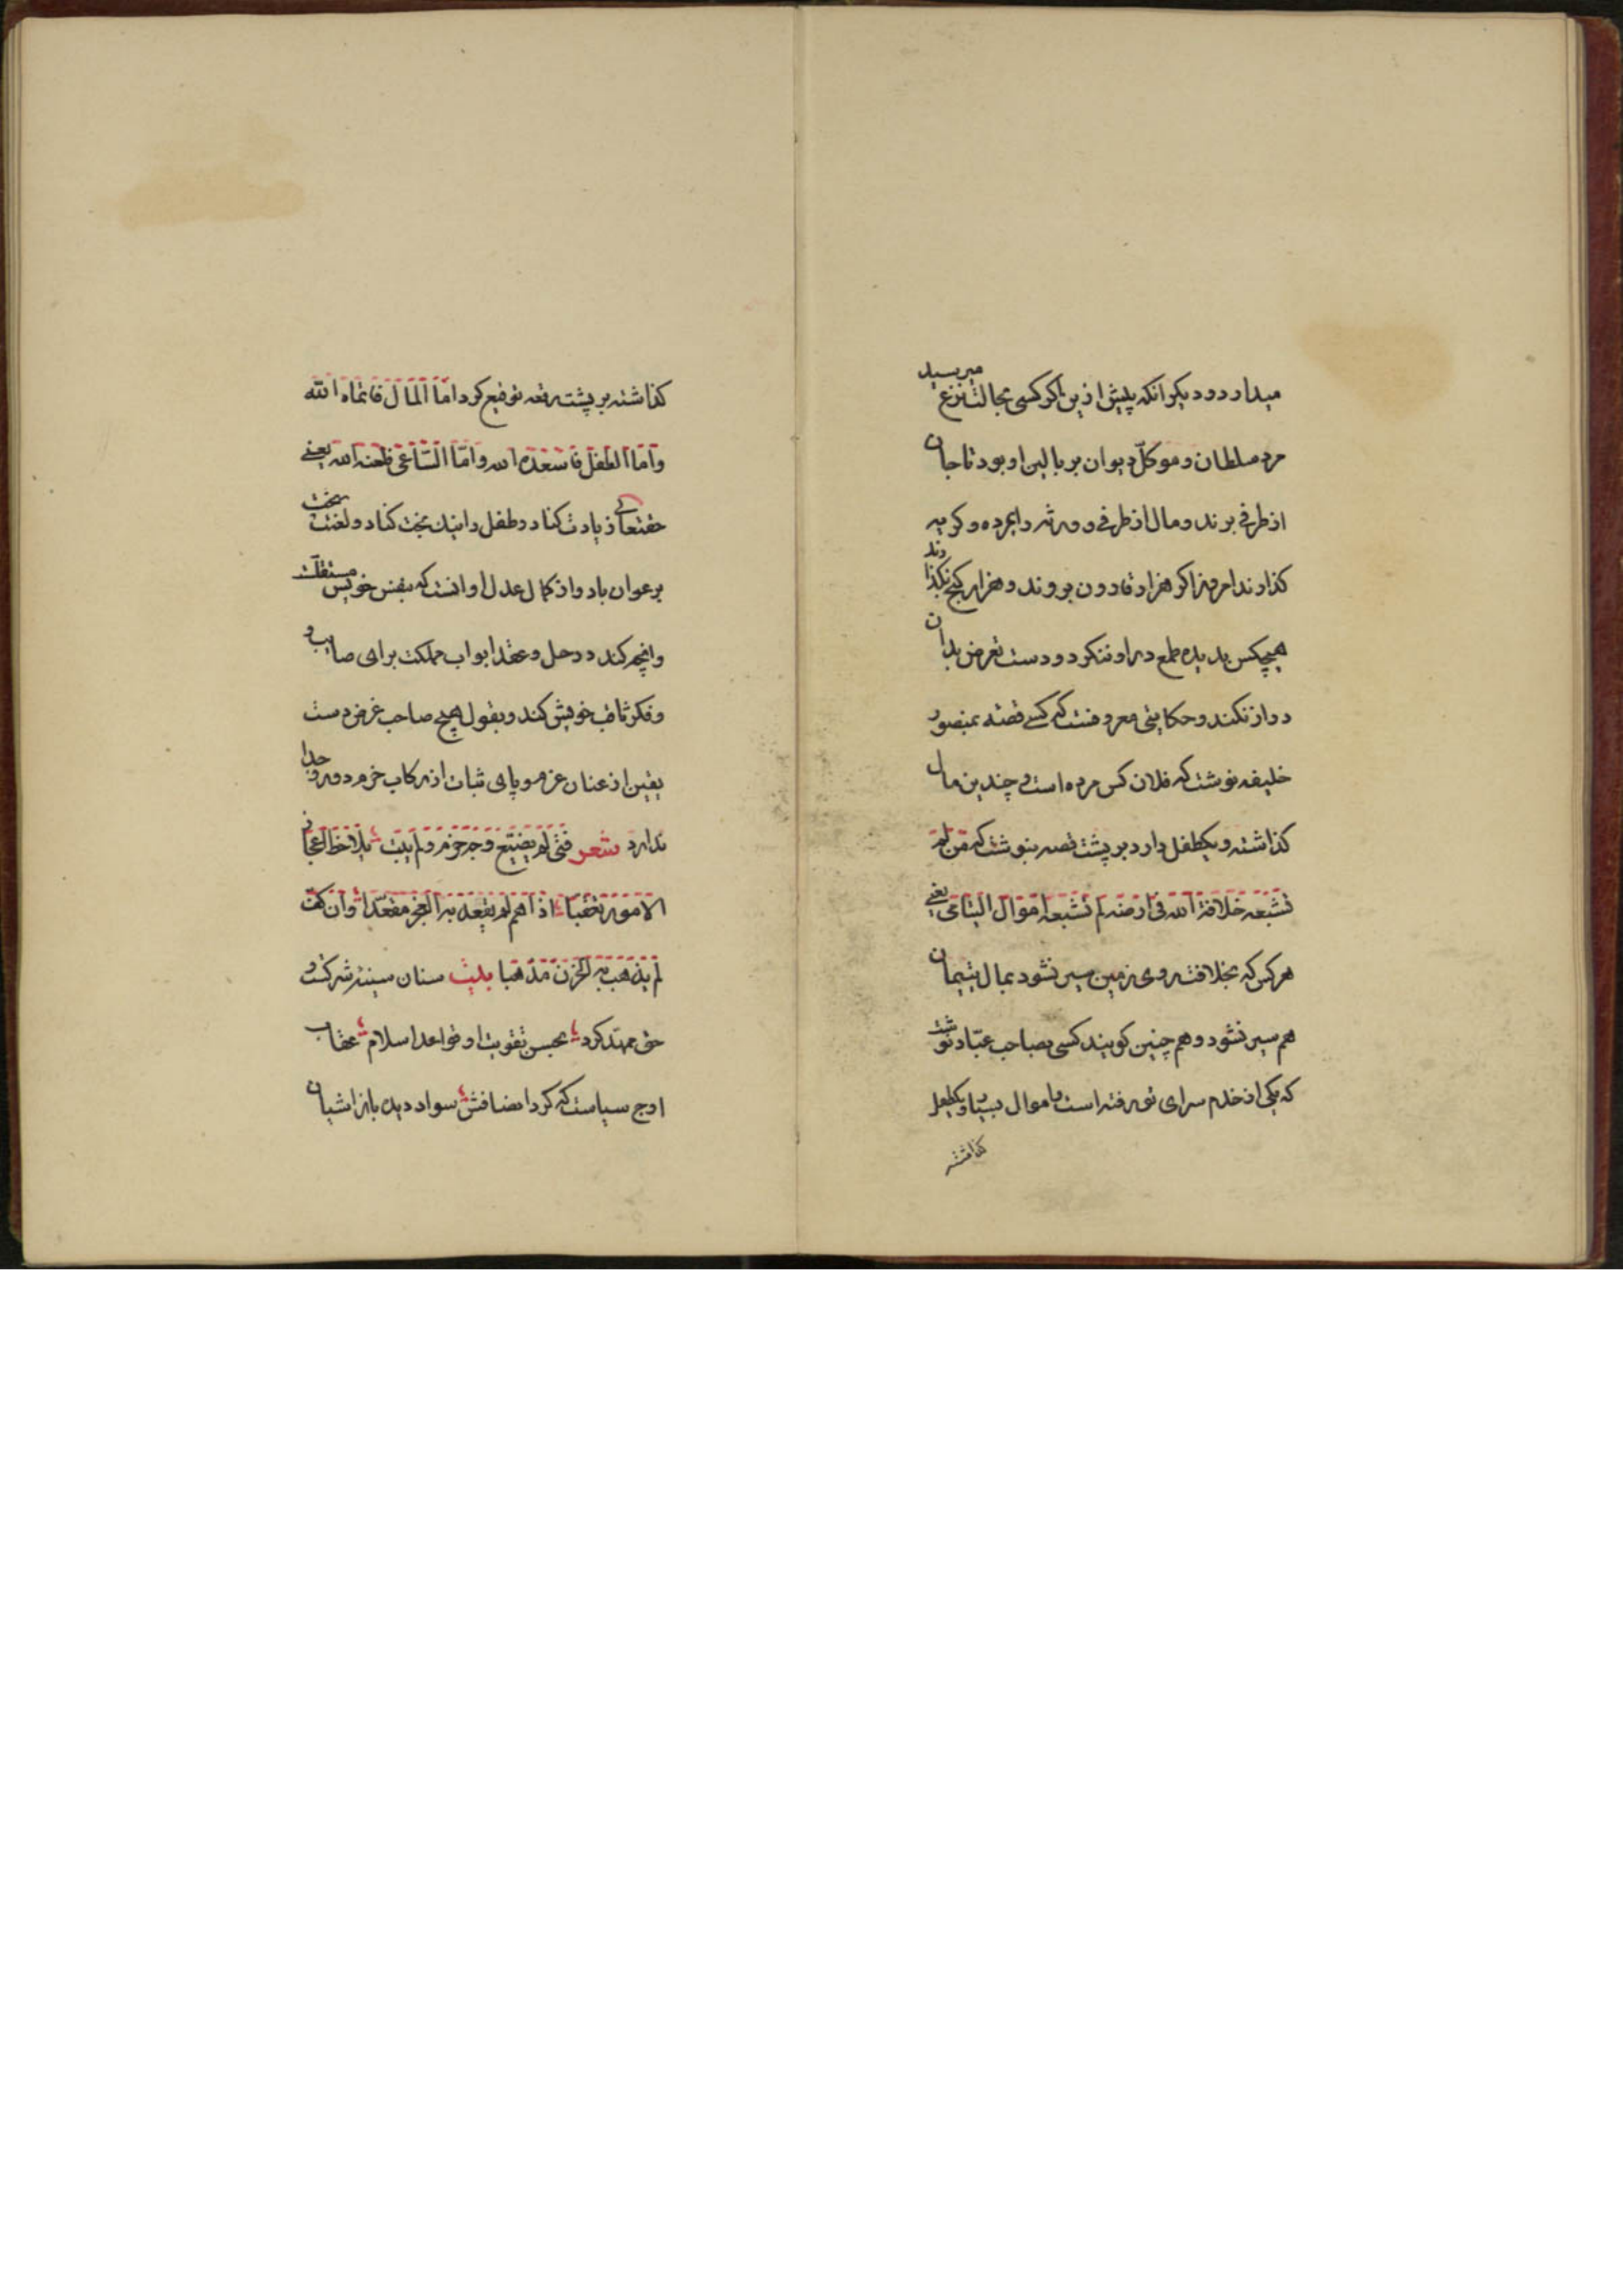 میدارد و دیکر انکه پیش ازین اکر کسی بحالت نزع میرسید
مرد سلطان و موکل دیوان بر بالین او بود تا جان
از طرفی برند و مال از طرفی و ورثه را بمرده و کریه
کذارند امروز اکر هزار قارون بروند و هزار کنج بکذارند
هیچکس بدیده طمع در او ننکرد و دست تعرض بدان
دراز نکند و حکایتی معروفست که کسی قصه بمنصور
خلیفه نوشت که فلان کس مرده است و چندین مال
کذاشته و یکطفل دارد بر پشت قصه بنوشت که من لم
تشبعه خلافة الله فی ارضه لم تشبعه اموال الیتامی یعنی
هر کس که بخلافت روی زمین سیر نشود بمال یتیمان
هم سیر نشود و هم چنین کویند کسی بصاحب عباد نوشت
که یکی از خدم سرای تو رفته است و اموال بسیار و یکطفل
کذاشته
کذاشته بر پشت رقعه توقیع کرد اما المال فانماه الله
واما الطفل فاسعده الله واما الساعی فلعنه الله یعنی
حقتعالی زیادت کناد و طفل را نیک بخت کناد و لعنت
بر عوان باد و از کمال عدل او انست که بنفس خویش مستقلست
وانچه کند در حل و عقد ابواب مملکت برای صایب و
و فکر ثاقب خویش کند و بقول هیچ صاحب غرض دست
یقین از عنان عزم و پای ثبات از رکاب حزم دور و جدا
ندارد شعر فتی لم یضیع وجه حزم ولم یبت یلاحظ اعجاز
الامور تعقبا اذا هم لم یقعد به العجز مقعدا وان کف
لم یذهب به الخرق مذهبا بیت سنان سینه شرکت و
حق مهتد کرد بحسن تقویت او قواعد اسلام عقاب
اوج سیاست که کرد انصافش سواد دیده باز اشیان